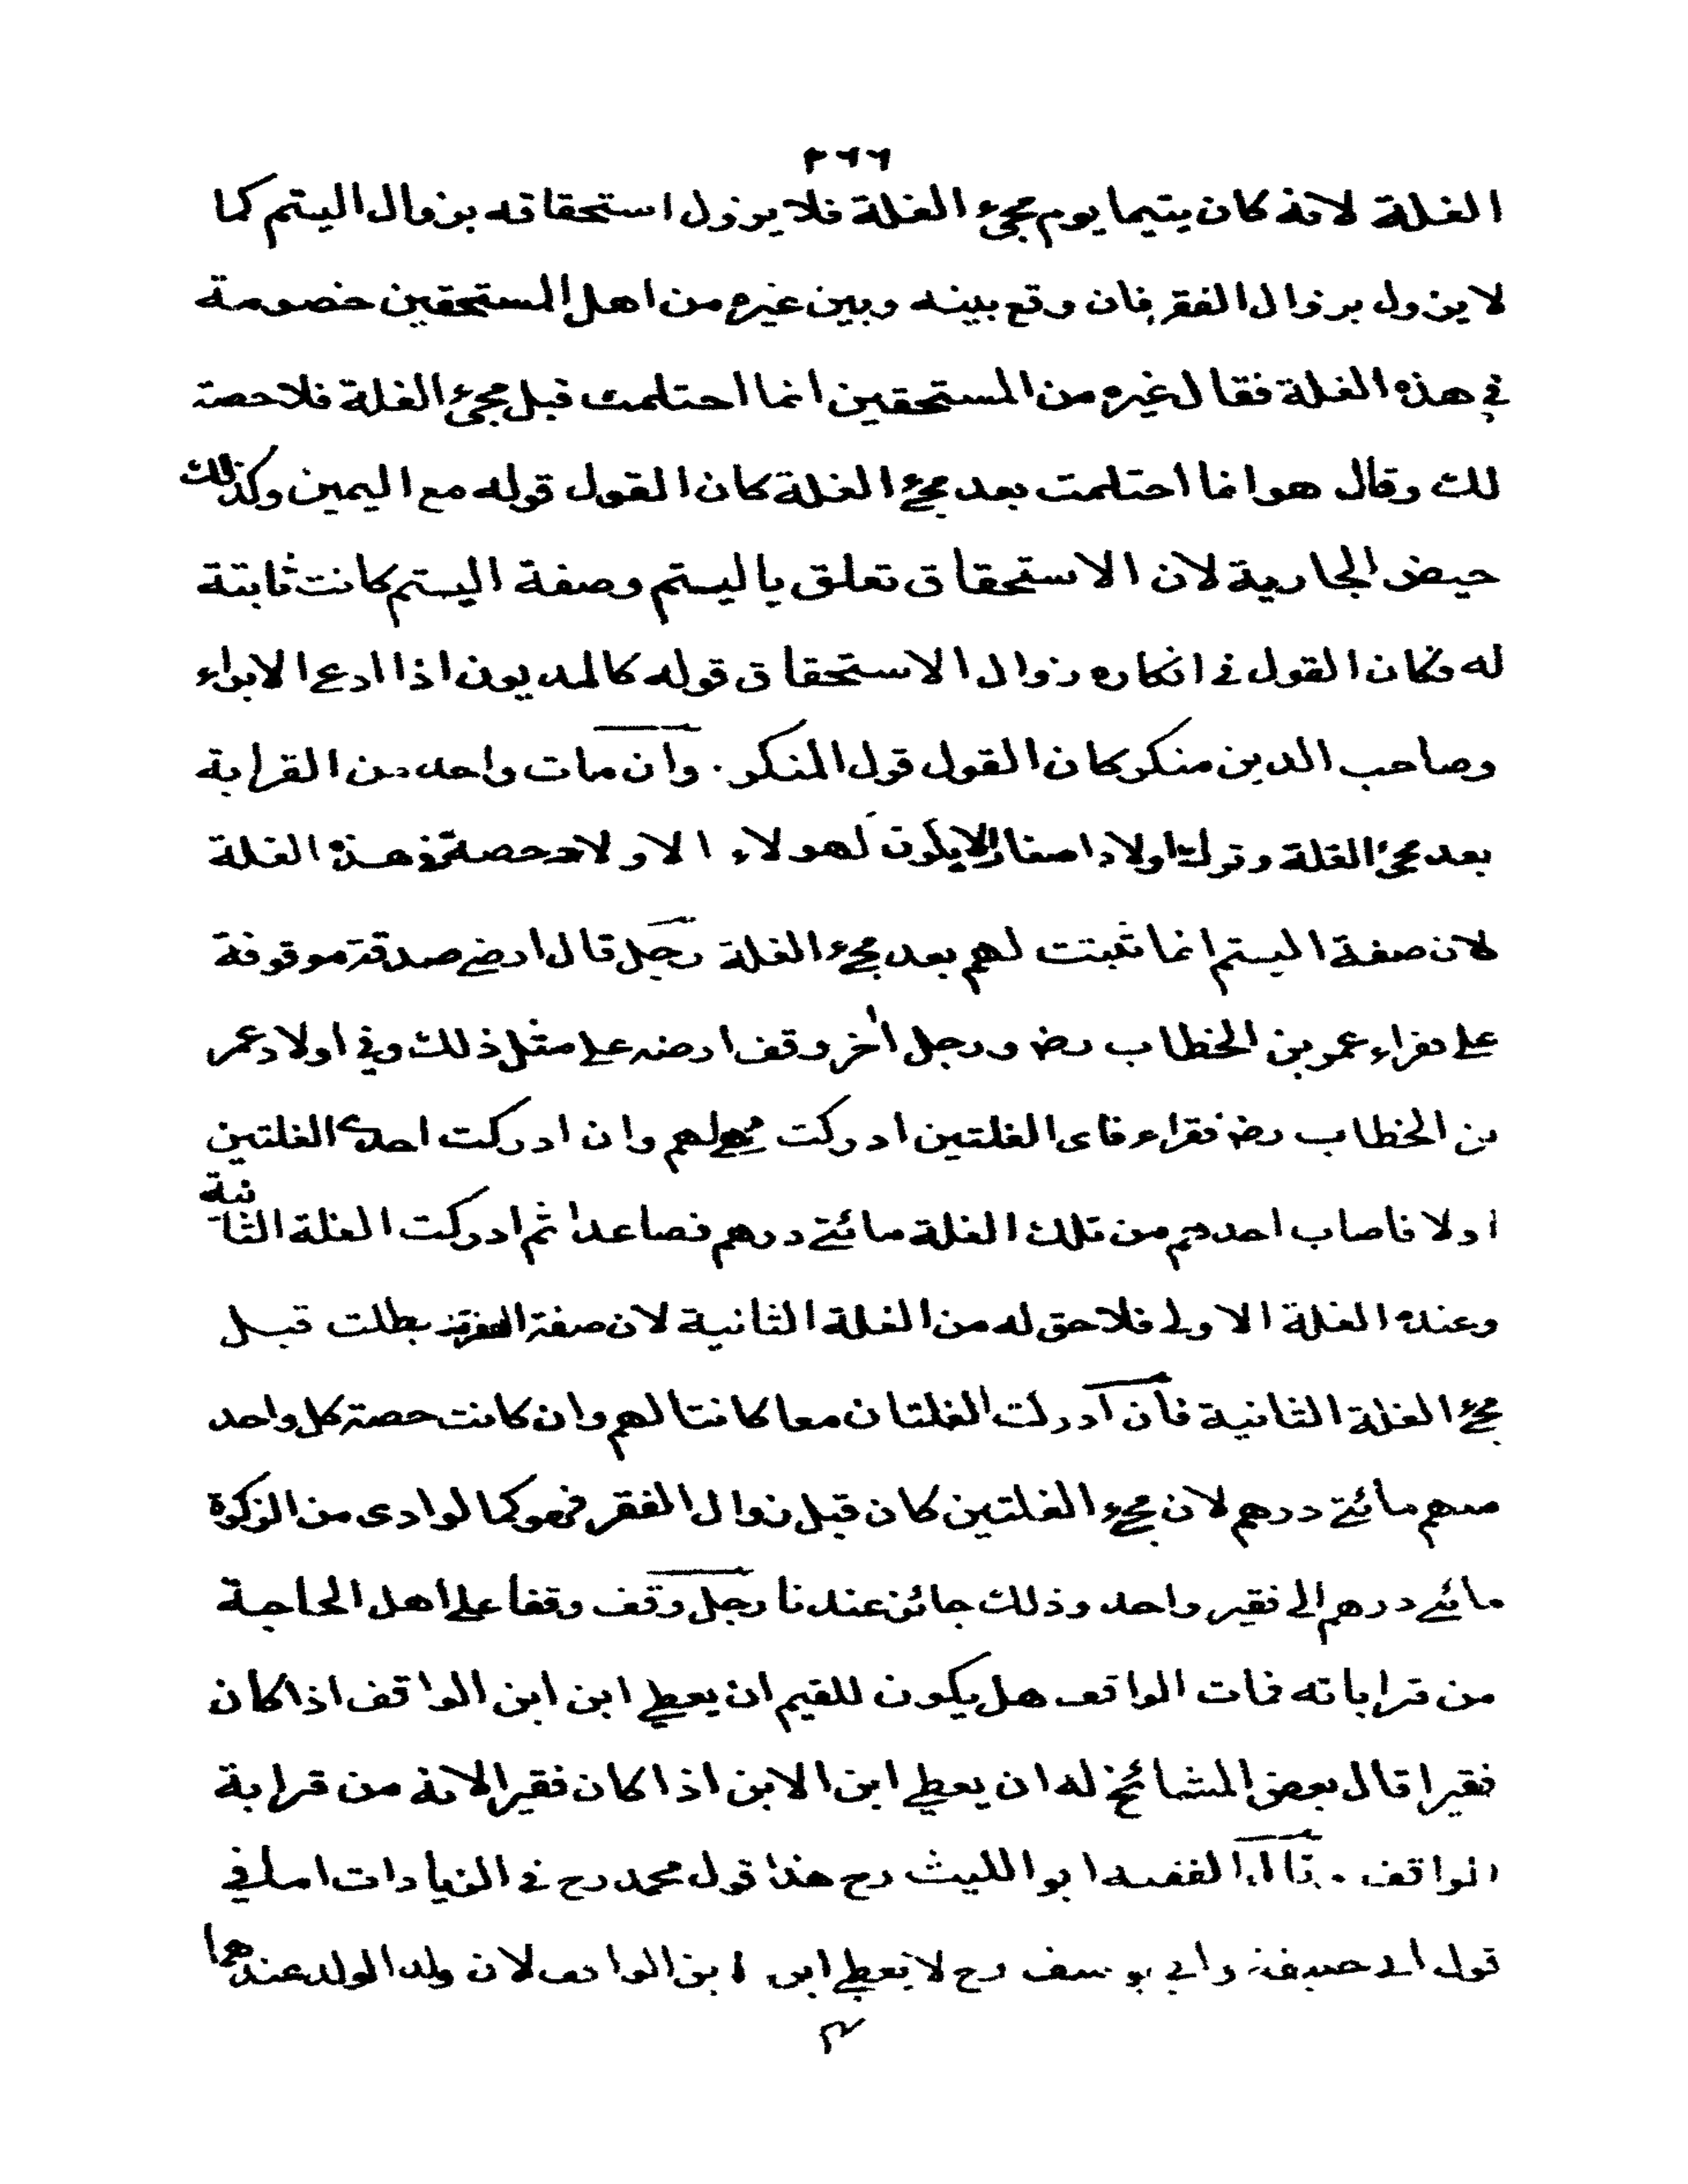 ٢٦٦
الغلة لانه كان يتيما يوم مجيء الغلة فلا يزول استحقاقه بزوال اليتم كما
لا يزول بزوال الفقر فان وقع بينه وبين غيره من اهل المستحقين خصومة
في هذه الغلة فقال غيره من المستحقين انما احتلمت قبل مجيء الغلة فلا حصة
لك وقال هو انما احتلمت بعد مجيء الغلة كان القول قوله مع اليمين وكذلك
حيض الجارية لان الاستحقاق تعلق باليتم وصفة اليتم كانت ثابتة
له فكان القول في انكاره زوال الاستحقاق قوله كالمديون اذا ادعى الابراء
وصاحب الدين منكر كان القول قول المنكر . وان مات واحد من القرابة
بعد مجيء الغلة وترك اولادا صغارا لا يكون لهولاء الاولاد حصة في هذه الغلة
لان صفة اليتم انما تثبتت لهم بعد مجيء الغلة رجل قال ارضي صدقة موقوفة
على فقراء عمر بن الخطاب رض ورجل اٰخر وقف ارضه على مثل ذلك وفي اولاد عمر
بن الخطاب رض فقراء فاى الغلتين ادركت فهي لهم وان ادركت احدى الغلتين
اولا فاصاب احدهم من تلك الغلة مائتي درهم فصاعدا ثم ادركت الغلة الثانية
وعنده الغلة الاولى فلا حق له من الغلة الثانية لان صفة الفقر قد بطلت قبل
مجيء الغلة الثانية فان ادركت الغلتان معا كانتا لهم وان كانت حصة كل واحد
منهم مائتي درهم لان مجيء الغلتين كان قبل زوال الفقر فهو كما لو ادى من الزكوة
مائتي درهم الى فقير واحد وذلك جائز عندنا رجل وقف وقفا على اهل الحاجة
من قراباته فمات الواقف هل يكون للقيم ان يعطي ابن ابن الواقف اذا كان
فقيرا قال بعض المشائخ له ان يعطي ابن الابن اذا كان فقيرا لانه من قرابة
الواقف . قال الفقيه ابو الليث رح هذا قول محمد رح في الزيادات اما في
قول ابي حنيفة وابي يوسف رح لا يعطي ابن ابن الواقف لان ولد الولد عندهما